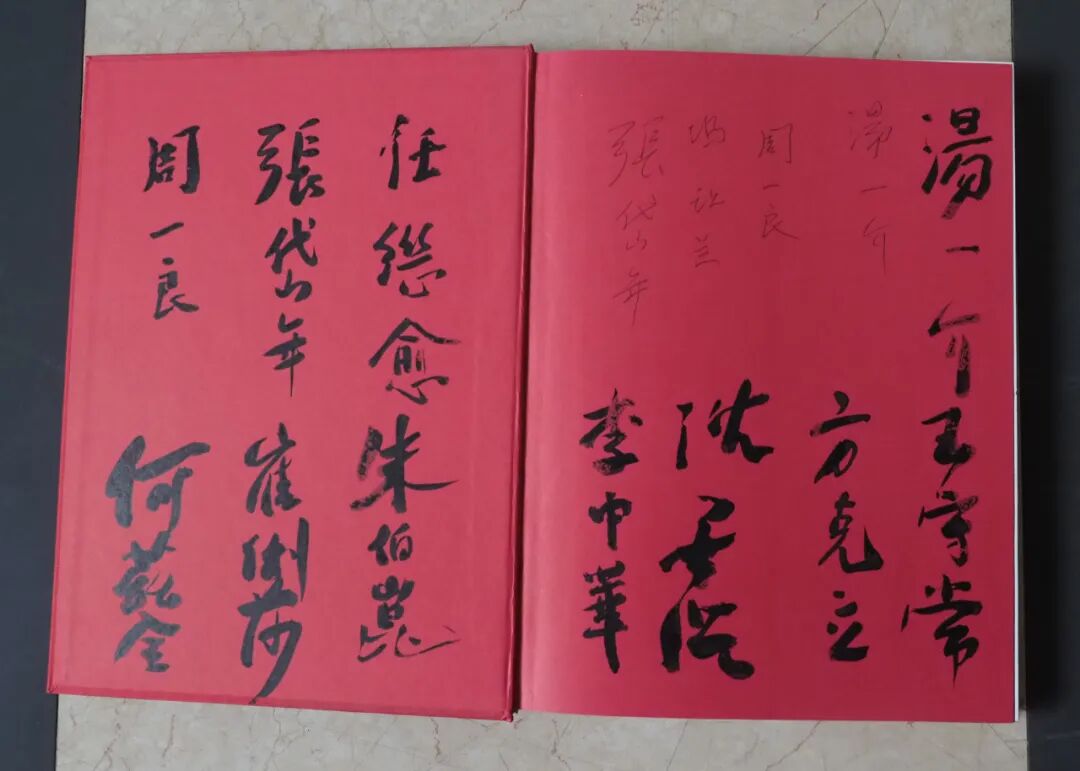 湯一介 王守常
湯一介
方克立
周一良
兰
沈善洪
張岱年
李中華
任繼愈 朱伯崑
張岱年 崔
周一良 何兹全